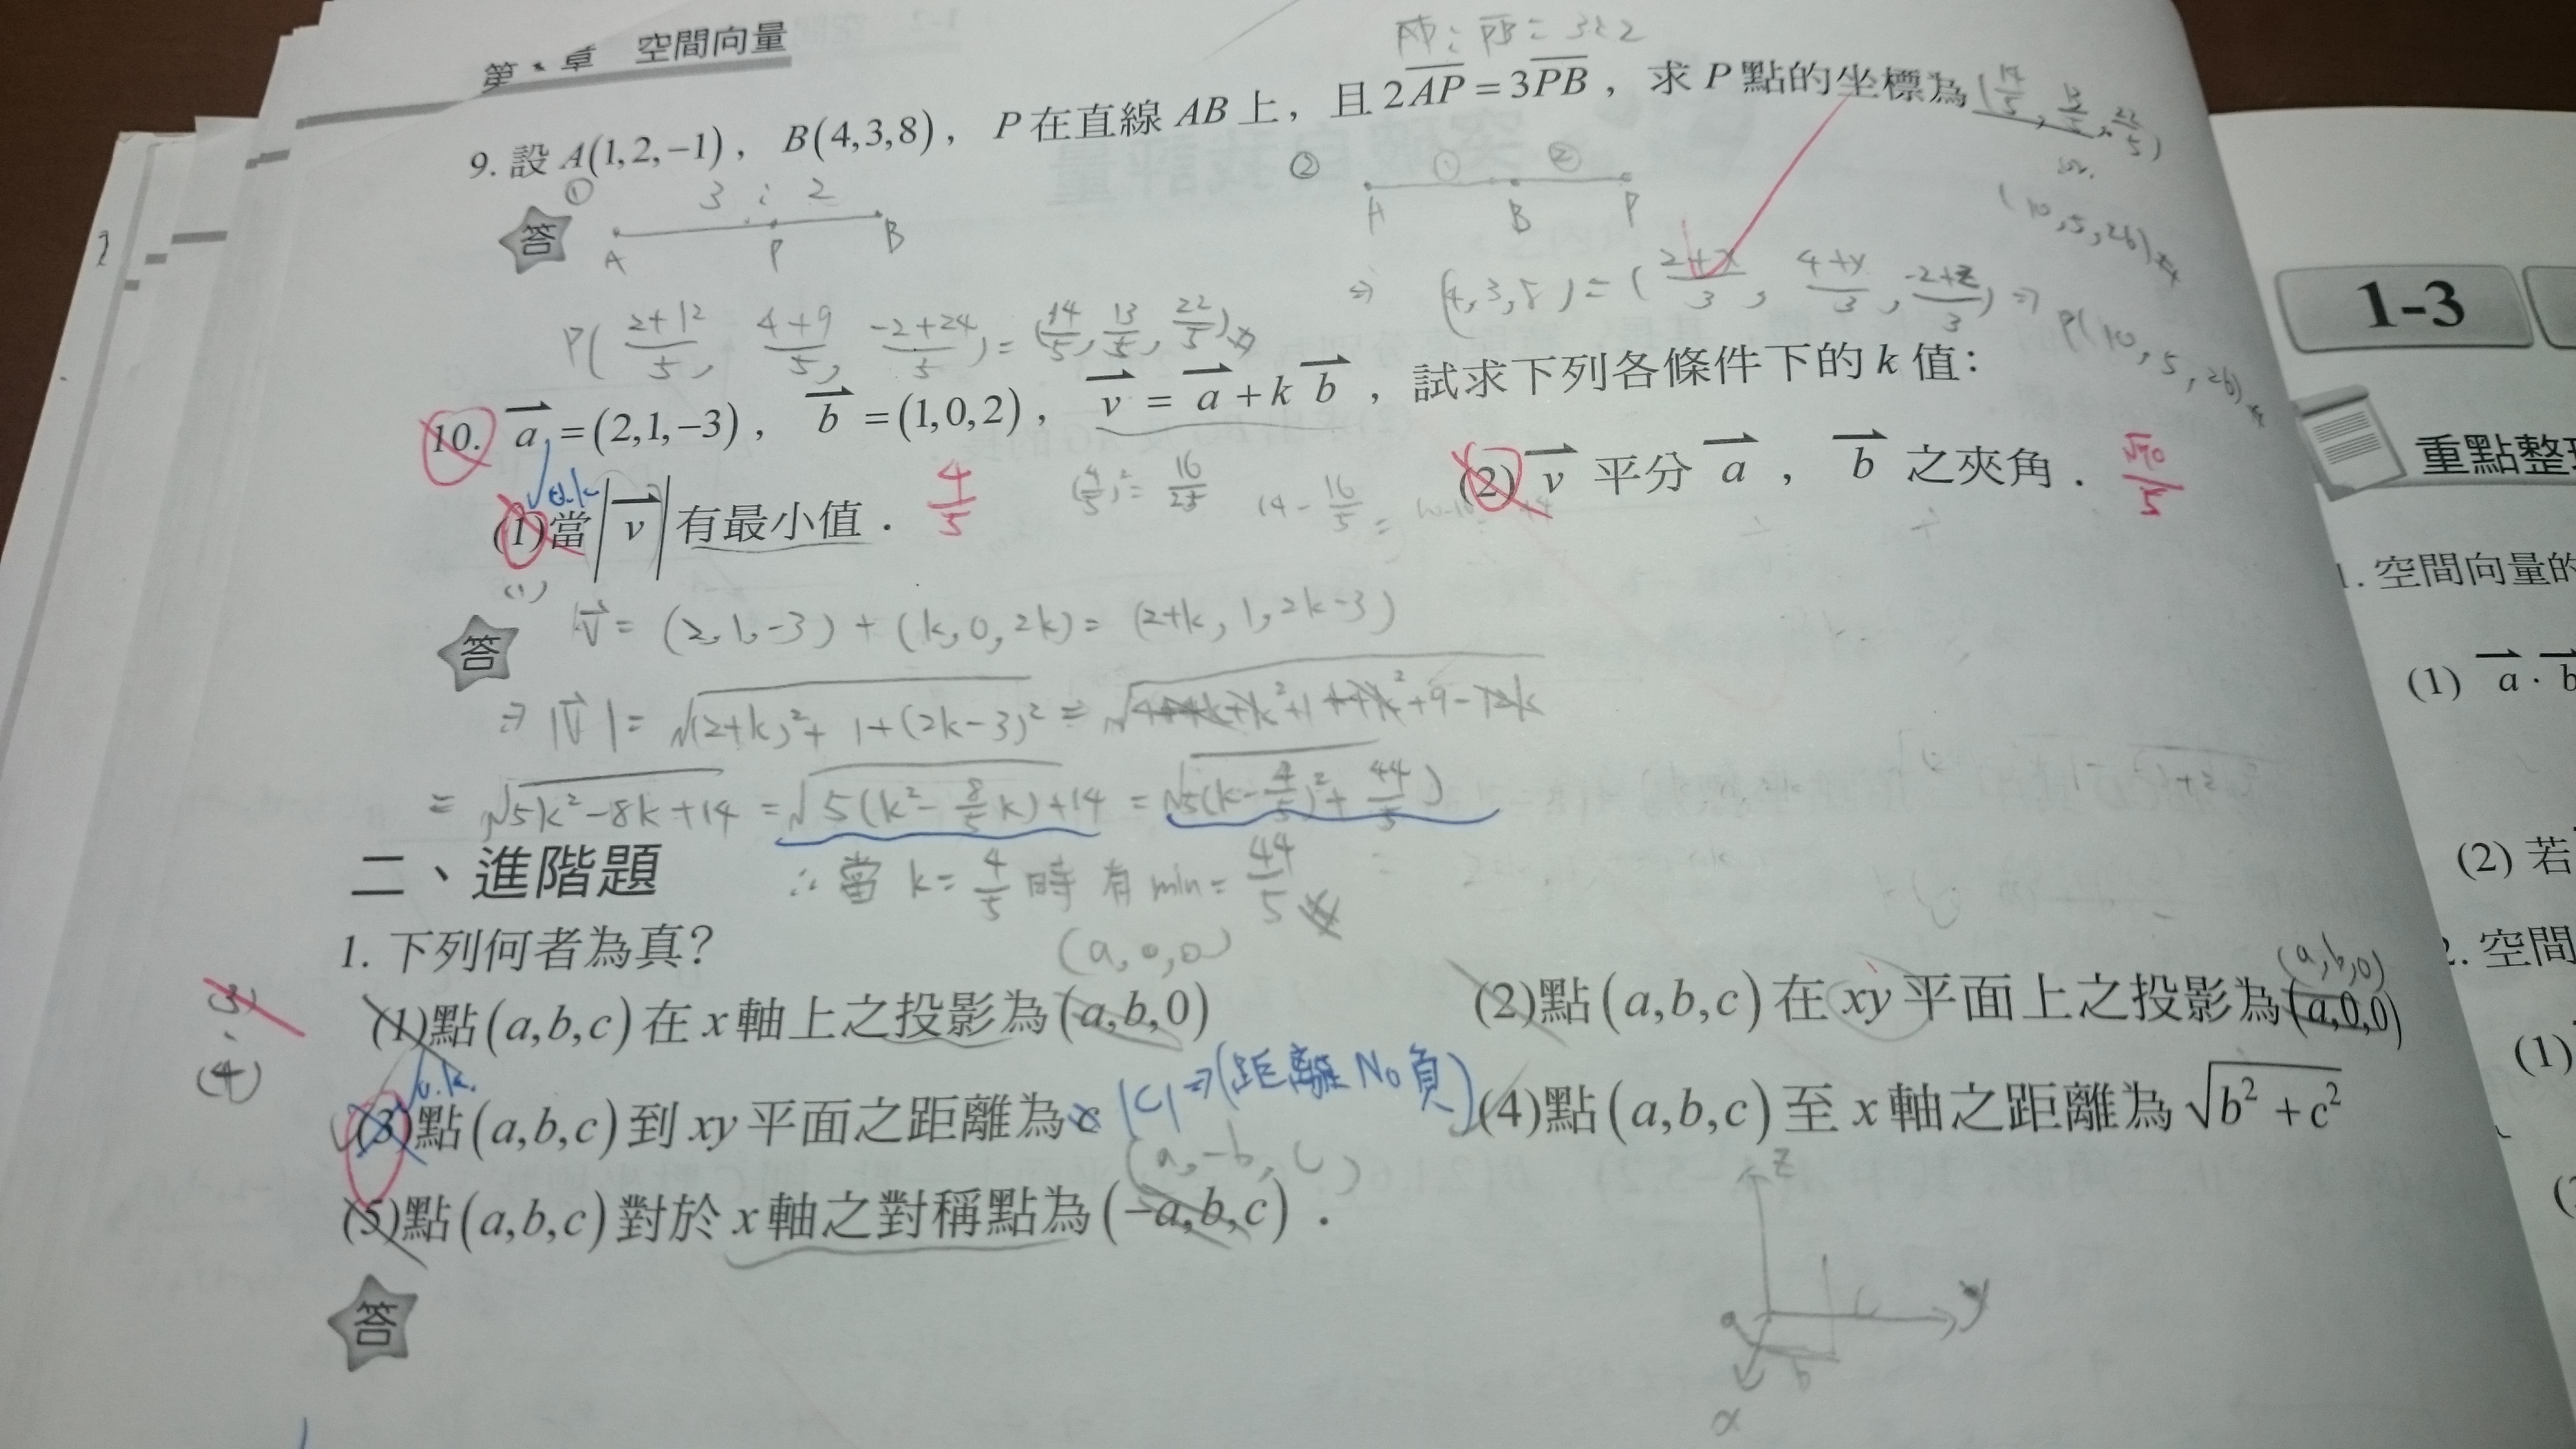 第 章 空間向量
AP : PB = 3:2
9. 設 A(1,2,−1)， B(4,3,8)， P 在直線 AB 上，且 2AP = 3PB，求 P 點的坐標為 (14/5, 13/5, 22/5)
or
(10,5,26)
① 3 : 2
A P B
② ① ②
A B P
答
P( (2+12)/5, (4+9)/5, (−2+24)/5 ) = (14/5, 13/5, 22/5)
⇒ (4,3,8) = ( (2+x)/3, (4+y)/3, (−2+z)/3 ) ⇒ P(10,5,26)
10. a = (2,1,−3)， b = (1,0,2)， v = a + k b ，試求下列各條件下的 k 值：
o.k
(1)當 |v| 有最小值． 4/5
(4/5)² = 16/25
14 − 16/5 =
(2) v 平分 a ， b 之夾角． √70/5
(1)
答
v = (2,1,−3) + (k,0,2k) = (2+k, 1, 2k−3)
⇒ |v| = √((2+k)²+1+(2k−3)²) = √(4+4k+k²+1+4k²+9−12k)
= √(5k²−8k+14) = √(5(k²−8/5k)+14) = √(5(k−4/5)²+44/5)
∴ 當 k = 4/5 時 有 min = 44/5
二、進階題
1. 下列何者為真？
(3)、(4)
(a,0,0)
(1)點(a,b,c)在 x 軸上之投影為(a,b,0)
(a,b,0)
(2)點(a,b,c)在 xy 平面上之投影為(a,0,0)
o.k.
(3)點(a,b,c)到 xy 平面之距離為 c |c| ⇒ (距離 No 負)
(4)點(a,b,c)至 x 軸之距離為 √(b²+c²)
(a,−b,c)
(5)點(a,b,c)對於 x 軸之對稱點為(−a,b,c)．
答
z
y
a
b
c
x
1-3
重點整
1. 空間向量的
(1) a · b
(2) 若
2. 空間
(1)